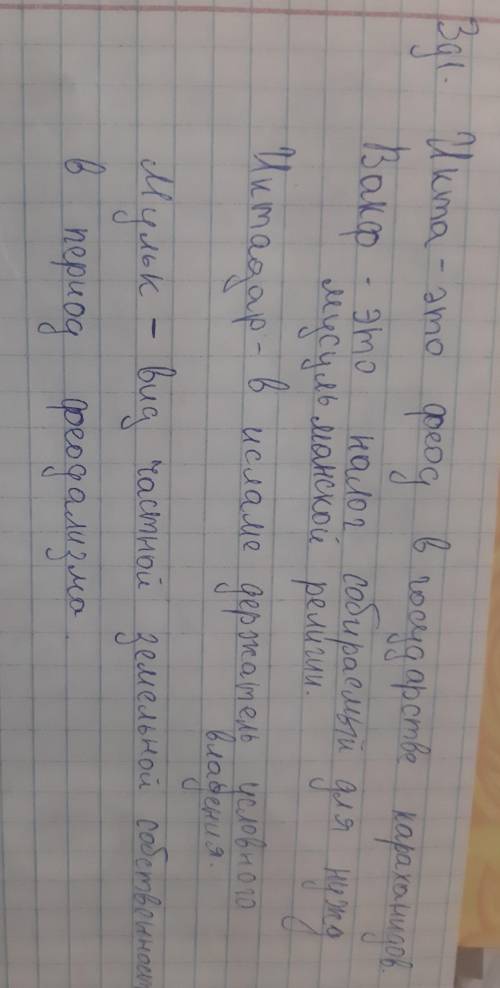 Зд1. Икта - это феод в государстве караханидов.
Вакф - это налог собираемый для нужд
мусульманской религии.
Иктадар - в исламе держатель условного
владения.
Мульк - вид частной земельной собственност
в период феодализма.